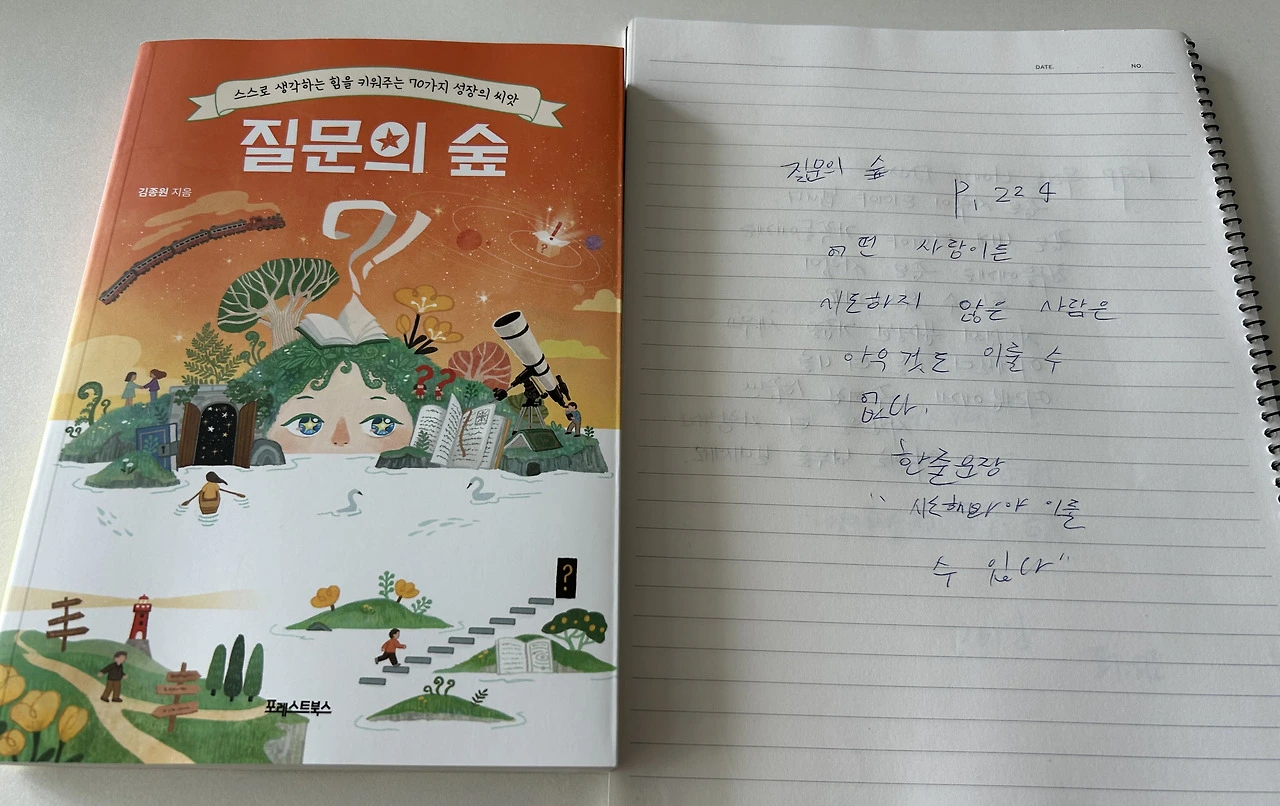 스스로 생각하는 힘을 키워주는 70가지 성장의 씨앗
질문의 숲
김종원 지음
?!
!
?
??
?
포레스트북스
DATE.
NO.
질문의 숲
P. 224
어떤 사람이든
시도하지 않은 사람은
아무것도 이룰 수
없다.
한줄문장
"시도해봐야 이룰
수 있다"